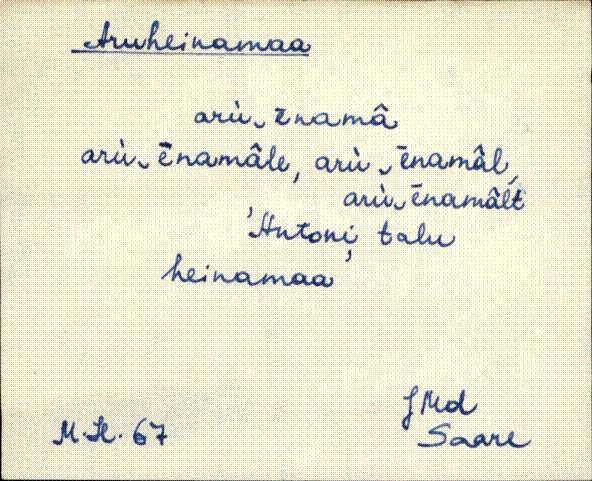 Aruheinamaa
arù‿ēnamâ
arù‿ēnamâle, arù‿ēnamâl,
arù‿ēnamâlt
'Antoni, talu
heinamaa'
M.K. 67
JMd
Saare